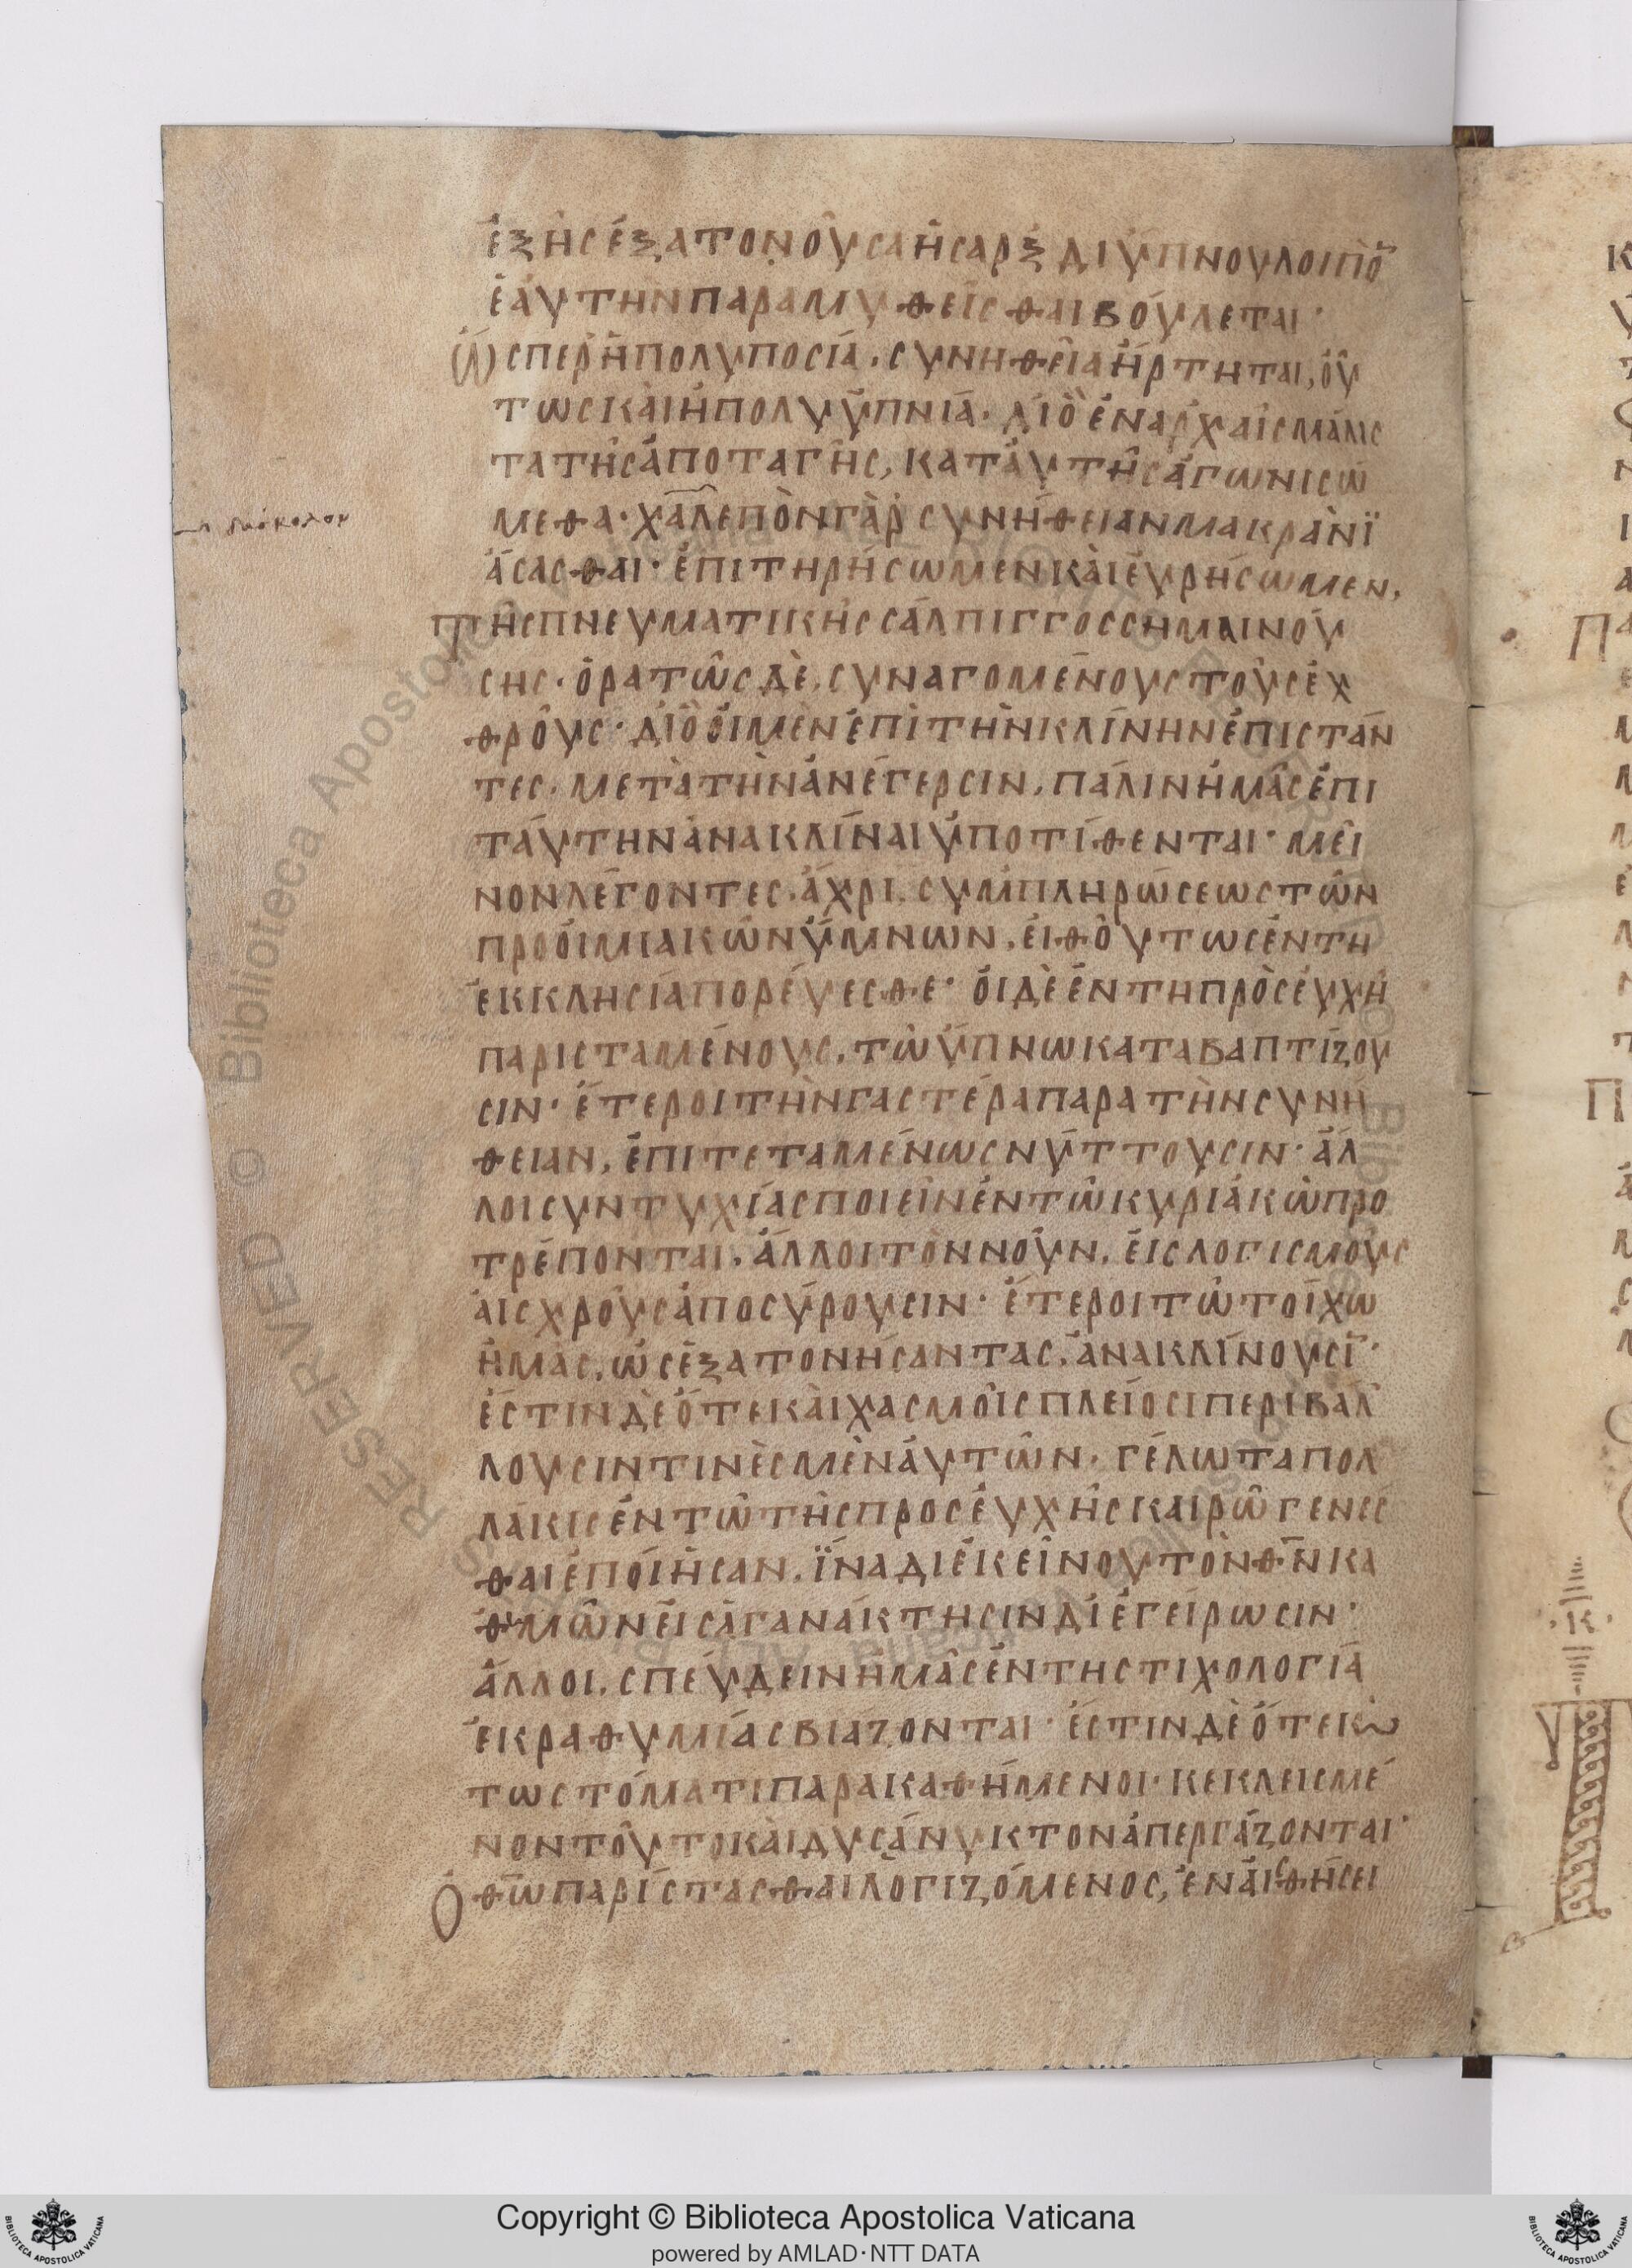 ἐξῆς ἐξατονοῦσα ἡ σὰρξ δι ὕπνου λοιπὸ̄
ἑαυτὴν παραμυθεῖσθαι βούλεται·
Ὥσπερ ἡ πολυποσία, συνηθεία ἤρτηται, οὕ
τως καὶ ἡ πολυϋπνία· διὸ ἐν ἀρχαῖς μάλισ
τα τῆς ἀποταγῆς, κατ αὐτῆς ἀγωνισώ
μεθα· χαλεπὸν γὰρ συνήθειαν μακρὰν ϊ
άσασθαι· ἐπιτηρήσωμεν καὶ εὑρήσωμεν,
τῆς πνευματικῆς σάλπιγγος σημαινού
σης· ὁρατῶς δὲ, συναγομένους τοὺς ἐχ
θρούς· διὸ οἱ μὲν ἐπὶ τὴν κλίνην ἐπιστάν
τες, μετὰ τὴν ἀνέγερσιν, πάλιν ἡμᾶς ἐπι
ταύτην ἀνακλῖναι ὑποτίθενται· μεῖ
νον λέγοντες, ἄχρι, συμπληρώσεως τῶν
προοιμιακῶν ὕμνων, εἶθ οὕτως ἐν τη
ἐκκλησία πορεύεσθε· οἱ δὲ ἐν τη προσευχῆ
παρισταμένους, τῶ ὕπνω καταβαπτίζου
σιν· ἕτεροι τὴν γαστέρα παρα τὴν συνή
θειαν, ἐπιτεταμένως νύττουσιν· ἄλ
λοι συντυχίας ποιεῖν ἐν τῶ κυριακῶ προ
τρέπονται, ἄλλοι τὸν νοῦν, εἰς λογισμοὺς
αἰσχροὺς ἀποσύρουσιν· ἕτεροι τῶ τοίχω
ἡμᾶς, ὡς ἐξατονήσαντας, ἀνακλίνουσῑ·
ἔστιν δὲ ὅτε καὶ χασμοῖς πλείοσι περιβάλ
λουσιν τινὲς μὲν αὐτῶν, γέλωτα πολ
λάκις ἐν τῶ τῆς προσευχῆς καιρῶ γενέσ
θαι ἐποίησαν, ϊνα δι ἐκείνου τὸν θ̅ν̅ κα
θ ἡμῶν εἰς ἀγανάκτησιν διεγείρωσιν·
ἄλλοι, σπεύδειν ἡμᾶς ἐν τη στιχολογία
ἐκ ραθυμίας βιάζονται· ἔστιν δὲ ὅτε κ(αὶ)
τω στόματι παρακαθήμενοι· κεκλεισμέ
νον τοῦτο καὶ δυσάνυκτον ἀπεργάζονται·
Ὁ θ̅ω̅ παρίστασθαι λογιζόμενος, ἐν αἰσθήσει